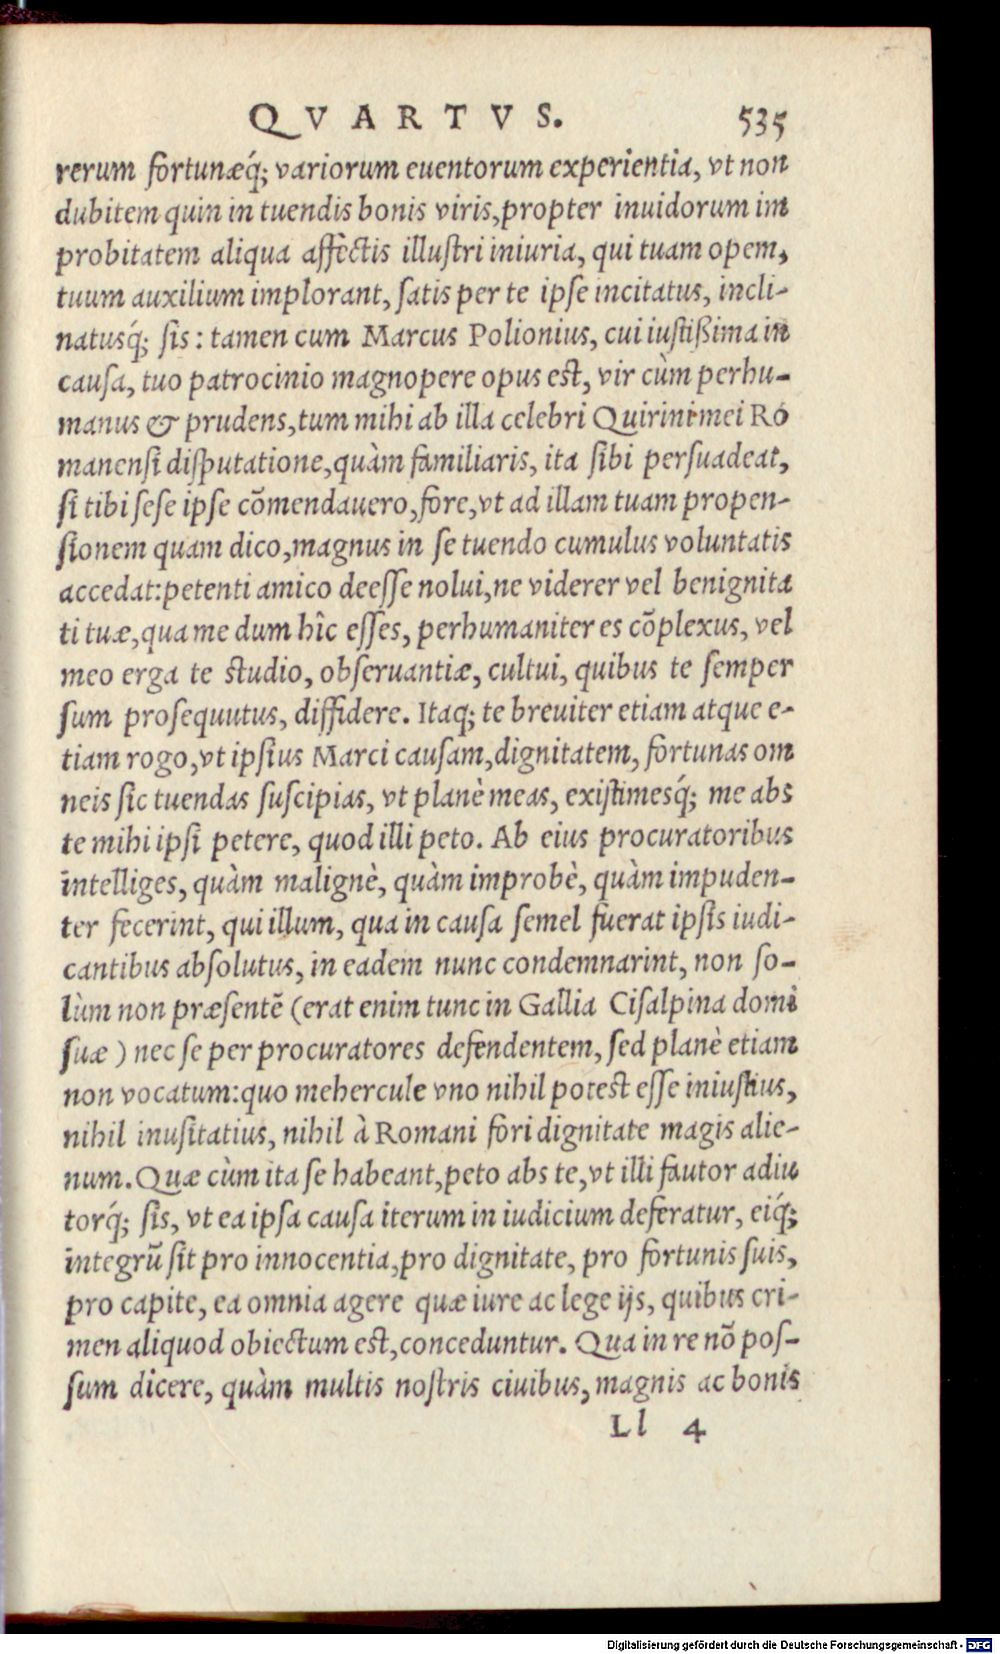 QVARTVS. 535
rerum fortunæq́; variorum euentorum experientia, vt non
dubitem quin in tuendis bonis viris, propter inuidorum im
probitatem aliqua affectis illuſtri iniuria, qui tuam opem,
tuum auxilium implorant, ſatis per te ipſe incitatus, incli-
natusq́; ſis: tamen cum Marcus Polionius, cui iuſtißima in
cauſa, tuo patrocinio magnopere opus eſt, vir cùm perhu-
manus & prudens, tum mihi ab illa celebri Quirini mei Ro
manenſi diſputatione, quàm familiaris, ita ſibi perſuadeat,
ſi tibi ſeſe ipſe cōmendauero, fore, vt ad illam tuam propen-
ſionem quam dico, magnus in ſe tuendo cumulus voluntatis
accedat: petenti amico deeſſe nolui, ne viderer vel benignita
ti tuæ, qua me dum hîc eſſes, perhumaniter es cōplexus, vel
meo erga te ſtudio, obſeruantiæ, cultui, quibus te ſemper
ſum proſequutus, diffidere. Itaq; te breuiter etiam atque e-
tiam rogo, vt ipſius Marci cauſam, dignitatem, fortunas om
neis ſic tuendas ſuſcipias, vt planè meas, exiſtimesq́; me abs
te mihi ipſi petere, quod illi peto. Ab eius procuratoribus
intelliges, quàm malignè, quàm improbè, quàm impuden-
ter fecerint, qui illum, qua in cauſa ſemel fuerat ipſis iudi-
cantibus abſolutus, in eadem nunc condemnarint, non ſo-
lùm non præſentē (erat enim tunc in Gallia Ciſalpina domi
ſuæ) nec ſe per procuratores defendentem, ſed planè etiam
non vocatum: quo mehercule vno nihil poteſt eſſe iniuſtius,
nihil inuſitatius, nihil à Romani fori dignitate magis alie-
num. Quæ cùm ita ſe habeant, peto abs te, vt illi fautor adiu
torq́; ſis, vt ea ipſa cauſa iterum in iudicium deferatur, eiq́;
integrū ſit pro innocentia, pro dignitate, pro fortunis ſuis,
pro capite, ea omnia agere quæ iure ac lege ijs, quibus cri-
men aliquod obiectum eſt, conceduntur. Qua in re nō poſ-
ſum dicere, quàm multis noſtris ciuibus, magnis ac bonis
Ll 4
Digitalisierung gefördert durch die Deutsche Forschungsgemeinschaft - DFG